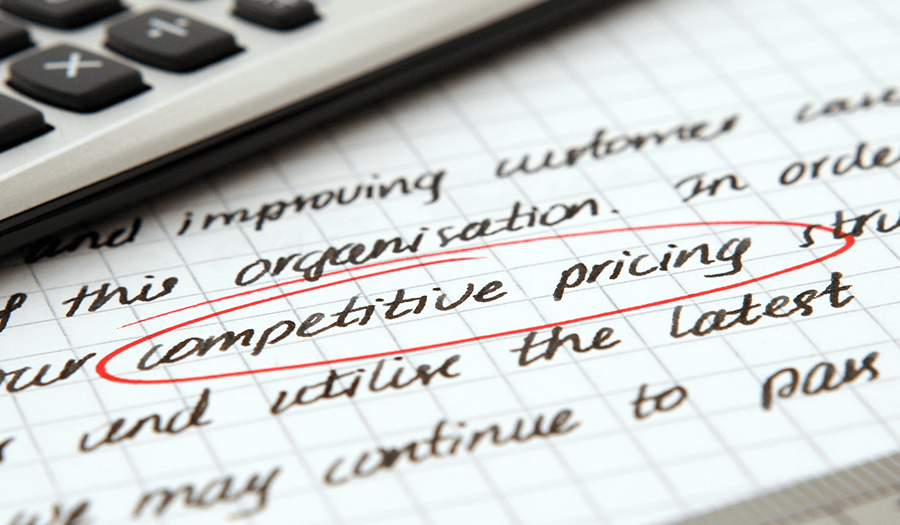 × ÷
and improving customer care
of this organisation. In order
our competitive pricing stru
and utilise the latest
we may continue to pass